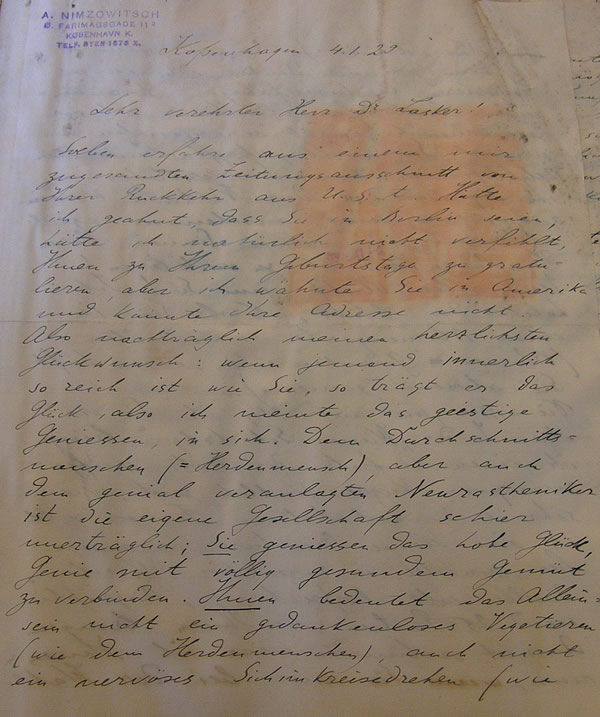 A. NIMZOWITSCH
Ø. FARIMAGSGADE 11
KØBENHAVN K.
TELF. BYEN 1575 X.
Kopenhagen 4.1.29
Sehr verehrter Herr Dr Lasker!
Soeben erfahre aus einem mir
zugesandten Zeitungsausschnitt von
Ihrer Rückkehr aus U.S.A. Hätte
ich geahnt dass Sie in Berlin seien,
hätte ich natürlich nicht verfehlt,
Ihnen zu Ihrem Geburtstage zu gratu-
lieren, aber ich wähnte Sie in Amerika
und kannte Ihre Adresse nicht.
Also nachträglich meinen herzlichsten
Glückwunsch: wenn jemand innerlich
so reich ist wie Sie, so trägt er das
Glück, also ich meinte das geistige
Geniessen, in sich. Dem Durchschnitts-
menschen (= Herdenmensch), aber auch
dem genial veranlagten Neurastheniker
ist die eigene Gesellschaft schier
unerträglich; Sie geniessen das hohe Glück,
Genie mit völlig gesundem Gemüt
zu verbinden. Ihnen bedeutet das Allein-
sein nicht ein gedankenloses Vegetieren
(wie dem Herdenmenschen), auch nicht
ein nervöses Sichimkreisedrehen (wie